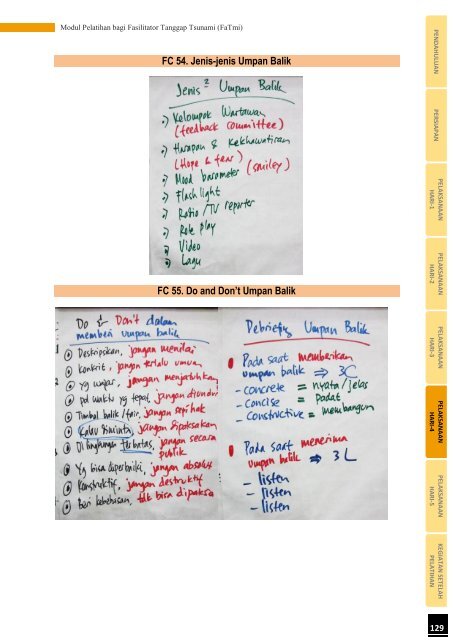 Modul Pelatihan bagi Fasilitator Tanggap Tsunami (FaTmi)
FC 54. Jenis-jenis Umpan Balik
Jenis² Umpan Balik
Kelompok Wartawan
(feedback committee)
Harapan & Kekhawatiran
(Hope & fear)
Mood barometer (smiley)
Flash light
Ratio/TV reporter
Role play
Video
Lagu
FC 55. Do and Don't Umpan Balik
Do & Don't dalam
memberi umpan balik
Deskripsikan, jangan menilai
Konkrit, jangan terlalu umum
Yg wajar, jangan menjatuhkan
pd waktu yg tepat, jangan
Timbal balik/fair, jangan sepihak
Kalau diminta, jangan dipaksakan
Di lingkungan terbatas, jangan secara
publik
Yg bisa diperbaiki, jangan absolut
Konstruktif, jangan destruktif
Beri kebebasan, tdk bisa dipaksa
Debriefing Umpan Balik
Pada saat memberikan
umpan balik ⇒ 3C
- concrete = nyata/jelas
- Concise = Padat
- Constructive = membangun
Pada saat menerima
umpan balik ⇒ 3L
- listen
- listen
- listen
PENDAHULUAN
PERSIAPAN
PELAKSANAAN
HARI-1
PELAKSANAAN
HARI-2
PELAKSANAAN
HARI-3
PELAKSANAAN
HARI-4
PELAKSANAAN
HARI-5
KEGIATAN SETELAH
PELATIHAN
129